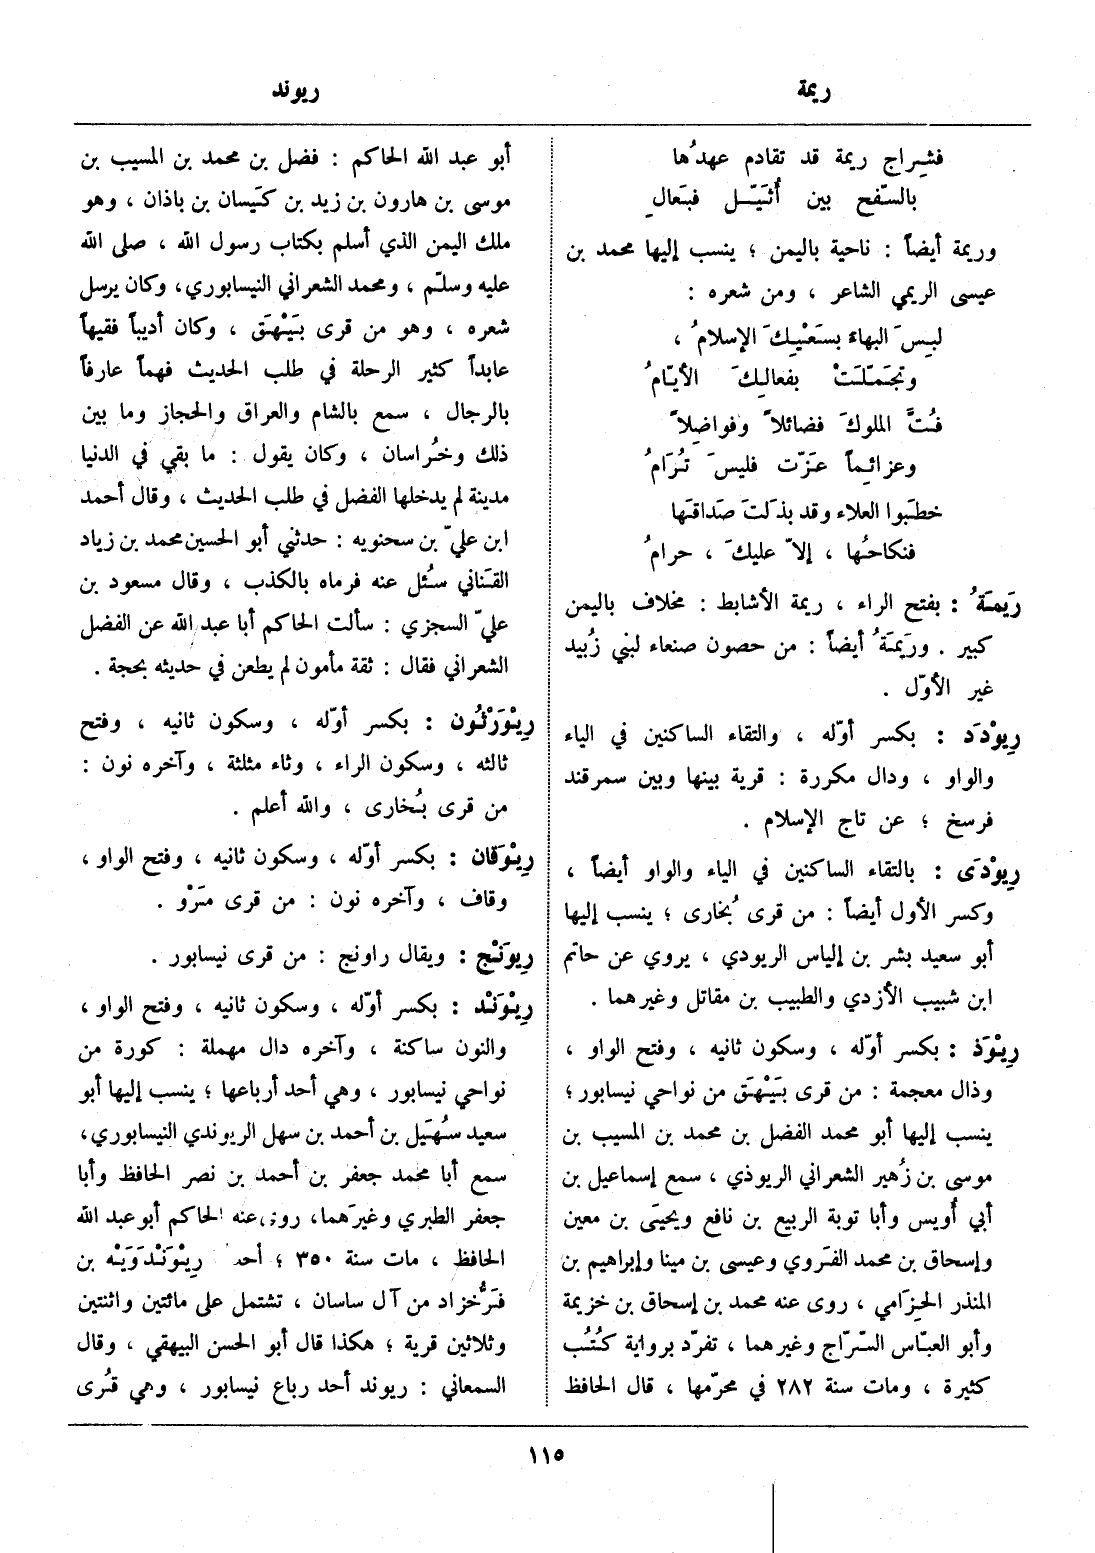 ريمة
ريوند
فشِراج ريمة قد تقادم عهدُها
بالسّفح بين أُثَيّل فبَعالِ
وريمة أيضاً : ناحية باليمن ؛ ينسب إليها محمد بن
عيسى الريمي الشاعر ، ومن شعره :
لبِسَ البهاءَ بسَعْيِكَ الإسلامُ ،
وتجَمّلَتْ بفعالِكَ الأيّامُ
فُتَّ الملوكَ فضائلاً وفواضِلاً
وعزائماً عزّت فليسَ تُرَامُ
خطَبوا العلاء وقد بذلتَ صَداقَها
فنكاحُها ، إلاّ عليكَ ، حرامُ
رَيمَةُ : بفتح الراء ، ريمة الأشابط : مخلاف باليمن
كبير . ورَيمَةُ أيضاً : من حصون صنعاء لبني زُبيد
غير الأوّل .
رِيودَد : بكسر أوّله ، والتقاء الساكنين في الياء
والواو ، ودال مكررة : قرية بينها وبين سمرقند
فرسخ ؛ عن تاج الإسلام .
رِيوْدَى : بالتقاء الساكنين في الياء والواو أيضاً ،
وكسر الأول أيضاً : من قرى بُخارى ؛ ينسب إليها
أبو سعيد بشر بن إلياس الريودي ، يروي عن حاتم
ابن شبيب الأزدي والطبيب بن مقاتل وغيرهما .
رِيْوَذ : بكسر أوّله ، وسكون ثانيه ، وفتح الواو ،
وذال معجمة : من قرى بَيْهَق من نواحي نيسابور ؛
ينسب إليها أبو محمد الفضل بن محمد بن المسيب بن
موسى بن زُهير الشعراني الريوذي ، سمع إسماعيل بن
أبي أُويس وأبا توبة الربيع بن نافع ويحيَى بن معين
وإسحاق بن محمد الفَروي وعيسى بن مينا وإبراهيم بن
المنذر الحِزامي ، روى عنه محمد بن إسحاق بن خزيمة
وأبو العبّاس السّرّاج وغيرهما ، تفرّد برواية كُتُب
كثيرة ، ومات سنة ٢٨٢ في محرّمها ، قال الحافظ
أبو عبد الله الحاكم : فضل بن محمد بن المسيب بن
موسى بن هارون بن زيد بن كَيسان بن باذان ، وهو
ملك اليمن الذي أسلم بكتاب رسول الله ، صلى الله
عليه وسلّم ، ومحمد الشعراني النيسابوري، وكان يرسل
شعره ، وهو من قرى بَيْهَق ، وكان أديباً فقيهاً
عابداً كثير الرحلة في طلب الحديث فهماً عارفاً
بالرجال ، سمع بالشام والعراق والحجاز وما بين
ذلك وخُراسان ، وكان يقول : ما بقي في الدنيا
مدينة لم يدخلها الفضل في طلب الحديث ، وقال أحمد
ابن عليّ بن سحنويه : حدثني أبو الحسين محمد بن زياد
القَناني سُئل عنه فرماه بالكذب ، وقال مسعود بن
عليّ السجزي : سألت الحاكم أبا عبد الله عن الفضل
الشعراني فقال : ثقة مأمون لم يطعن في حديثه بحجة .
رِيْوَرْثُون : بكسر أوّله ، وسكون ثانيه ، وفتح
ثالثه ، وسكون الراء ، وثاء مثلثة ، وآخره نون :
من قرى بُخارى ، والله أعلم .
رِيْوَقان : بكسر أوّله ، وسكون ثانيه ، وفتح الواو ،
وقاف ، وآخره نون : من قرى مَرْو .
رِيوَنْج : ويقال راونج : من قرى نيسابور .
رِيْوَنْد : بكسر أوّله ، وسكون ثانيه ، وفتح الواو ،
والنون ساكنة ، وآخره دال مهملة : كورة من
نواحي نيسابور ، وهي أحد أرباعها ؛ ينسب إليها أبو
سعيد سُهَيل بن أحمد بن سهل الريوندي النيسابوري،
سمع أبا محمد جعفر بن أحمد بن نصر الحافظ وأبا
جعفر الطبري وغيرَهما، روى عنه الحاكم أبو عبد الله
الحافظ ، مات سنة ٣٥٠ ؛ أحد رِيْوَنْدَوَيْه بن
فرُّخزاد من آل ساسان ، تشتمل على مائتين واثنتين
وثلاثين قرية ؛ هكذا قال أبو الحسن البيهقي ، وقال
السمعاني : ريوند أحد رباع نيسابور ، وهي قُرى
١١٥